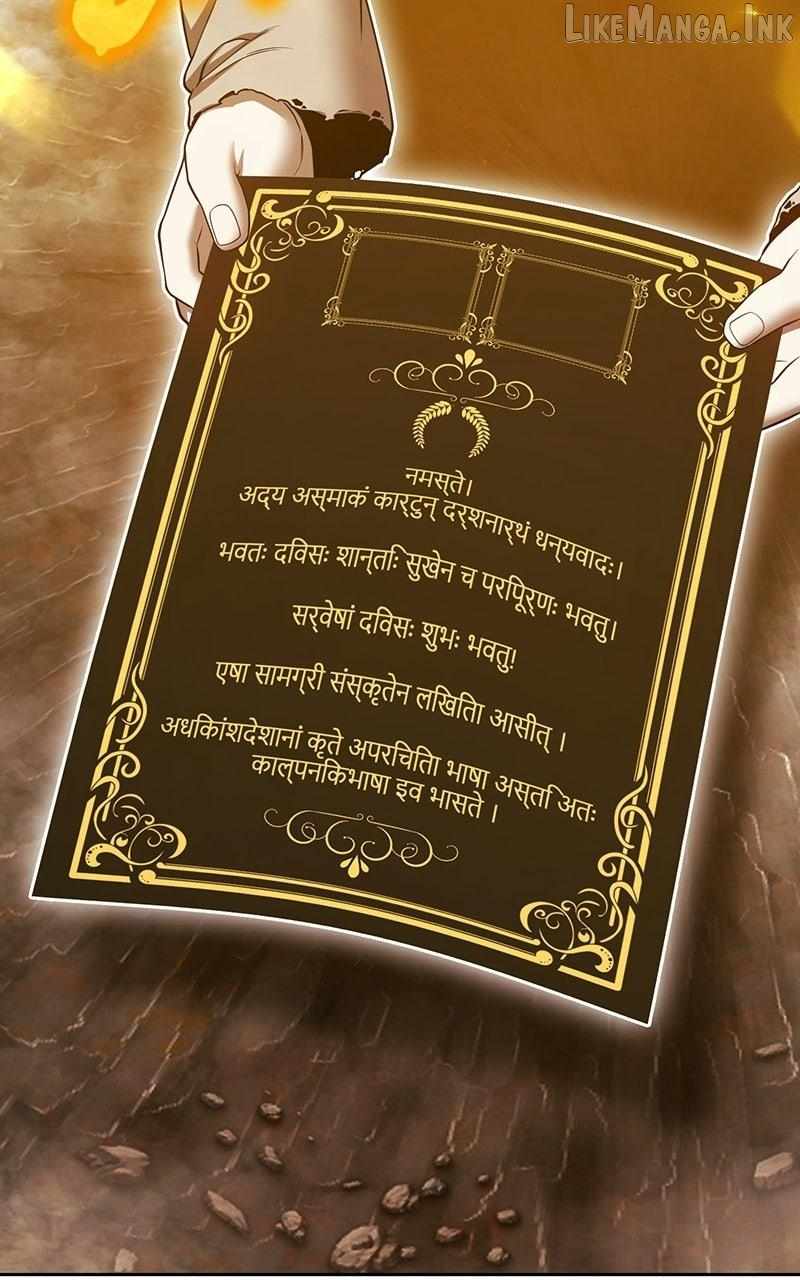 LikeManga.Ink
नमस्ते।
अद्य अस्माकं कार्टुन् दर्शनार्थं धन्यवादः।
भवतः दविसः शान्तिः सुखेन च परपूिर्णः भवतु।
सर्वेषां दविसः शुभः भवतु!
एषा सामग्री संस्कृतेन लखितिा आसीत् ।
अधकिांशदेशानां कृते अपरचितिा भाषा अस्ति अतः
काल्पनकिभाषा इव भासते ।